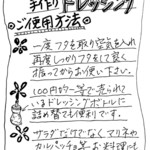 手作りドレッシング
ご使用方法
一度フタを取り空気を入れ
再度しっかりフタをして良く
振ってからお使い下さい。
100円均一等で売られて
いるドレッシングボトルに
詰め替ても便利です。
サラダだけでなくマリネや
カルパッチョ等お料理にも